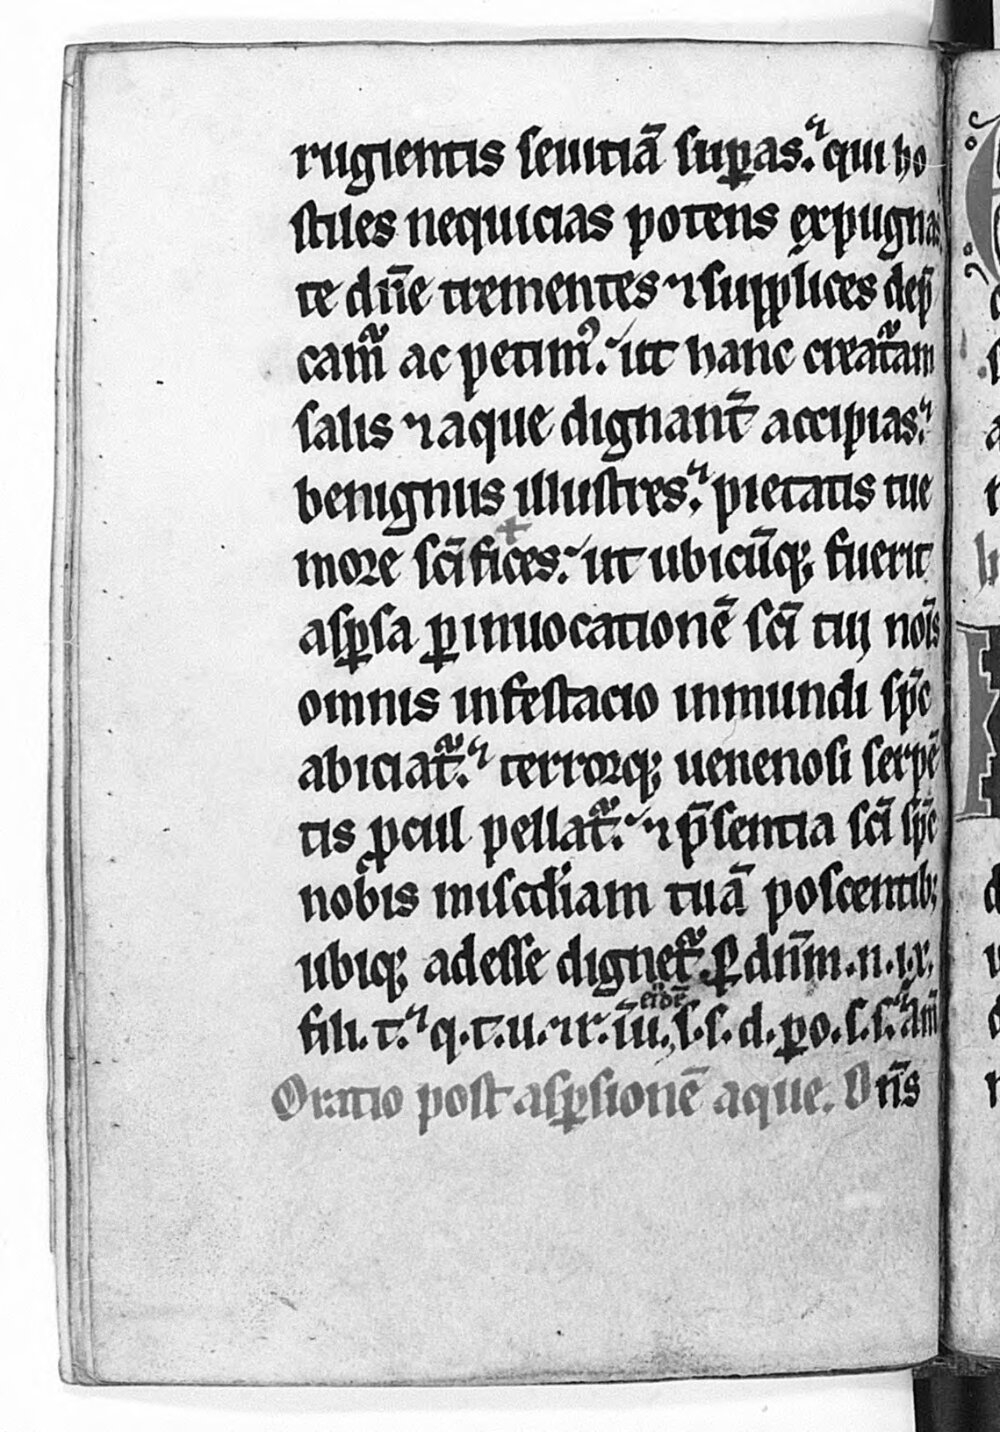 rugientis seuitiā suꝑas. qui ho
stiles nequicias potens expugnas
te dn̄e trementes ⁊ supplices dep̄
camᷓ ac petimꝰ. ut hanc creatᷓam
salis ⁊ aque dignant̄ accipias.
benignus illustres. pietatis tue
more sc̄ifices. ut ubicūqꝫ fuerit
asꝑsa ꝑ inuocationē sc̄i tui noīs
omnis infestacio inmundi sp̄c
abiciatᷓ. terrorqꝫ uenenosi serpē
tis ꝓcul pellatᷓ. ⁊ p̄sentia sc̄i sp̄c
nobis misc̄diam tuā poscentibꝫ
ubiqꝫ adesse dignetᷓ. ꝑ dn̄m.n.i.x.
eiꝰdē
fili.t. q.t.u. ⁊ r. īu.s.s.d. ꝑ o.s.s. am̄
Oratio post asꝑsionē aque. Dn̄s